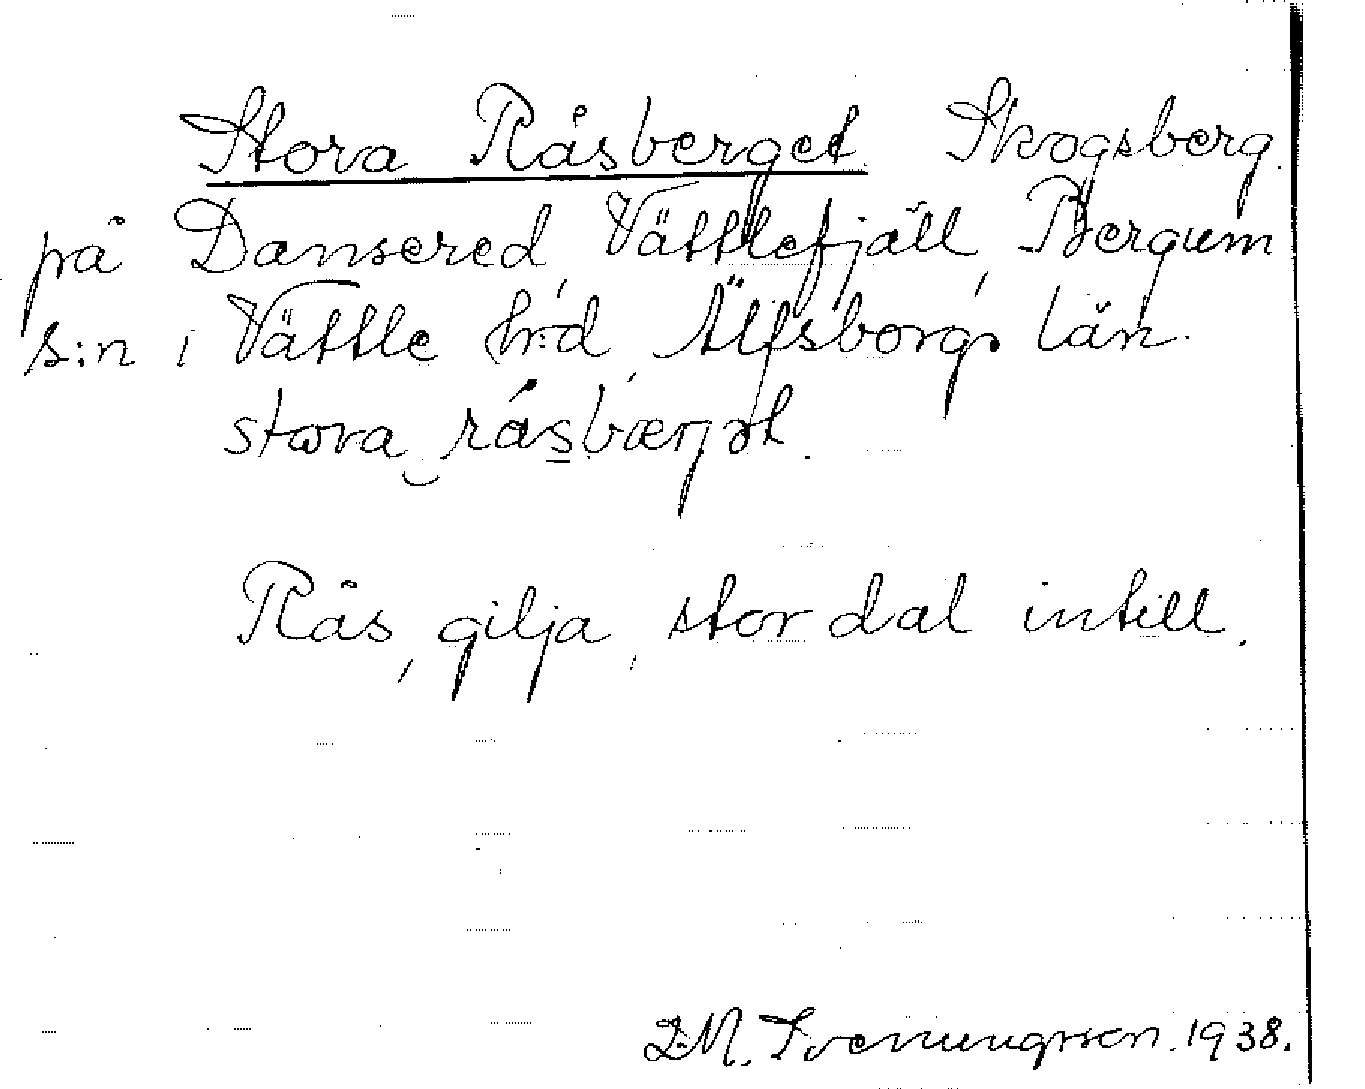 Stora Råsberget. Skogsberg
på Dansered, Vättlefjäll, Bergum
s:n i Vättle hrd, Älfsborgs län.
stora råsbærjət.
Rås, gilja, stor dal intill.
1938.